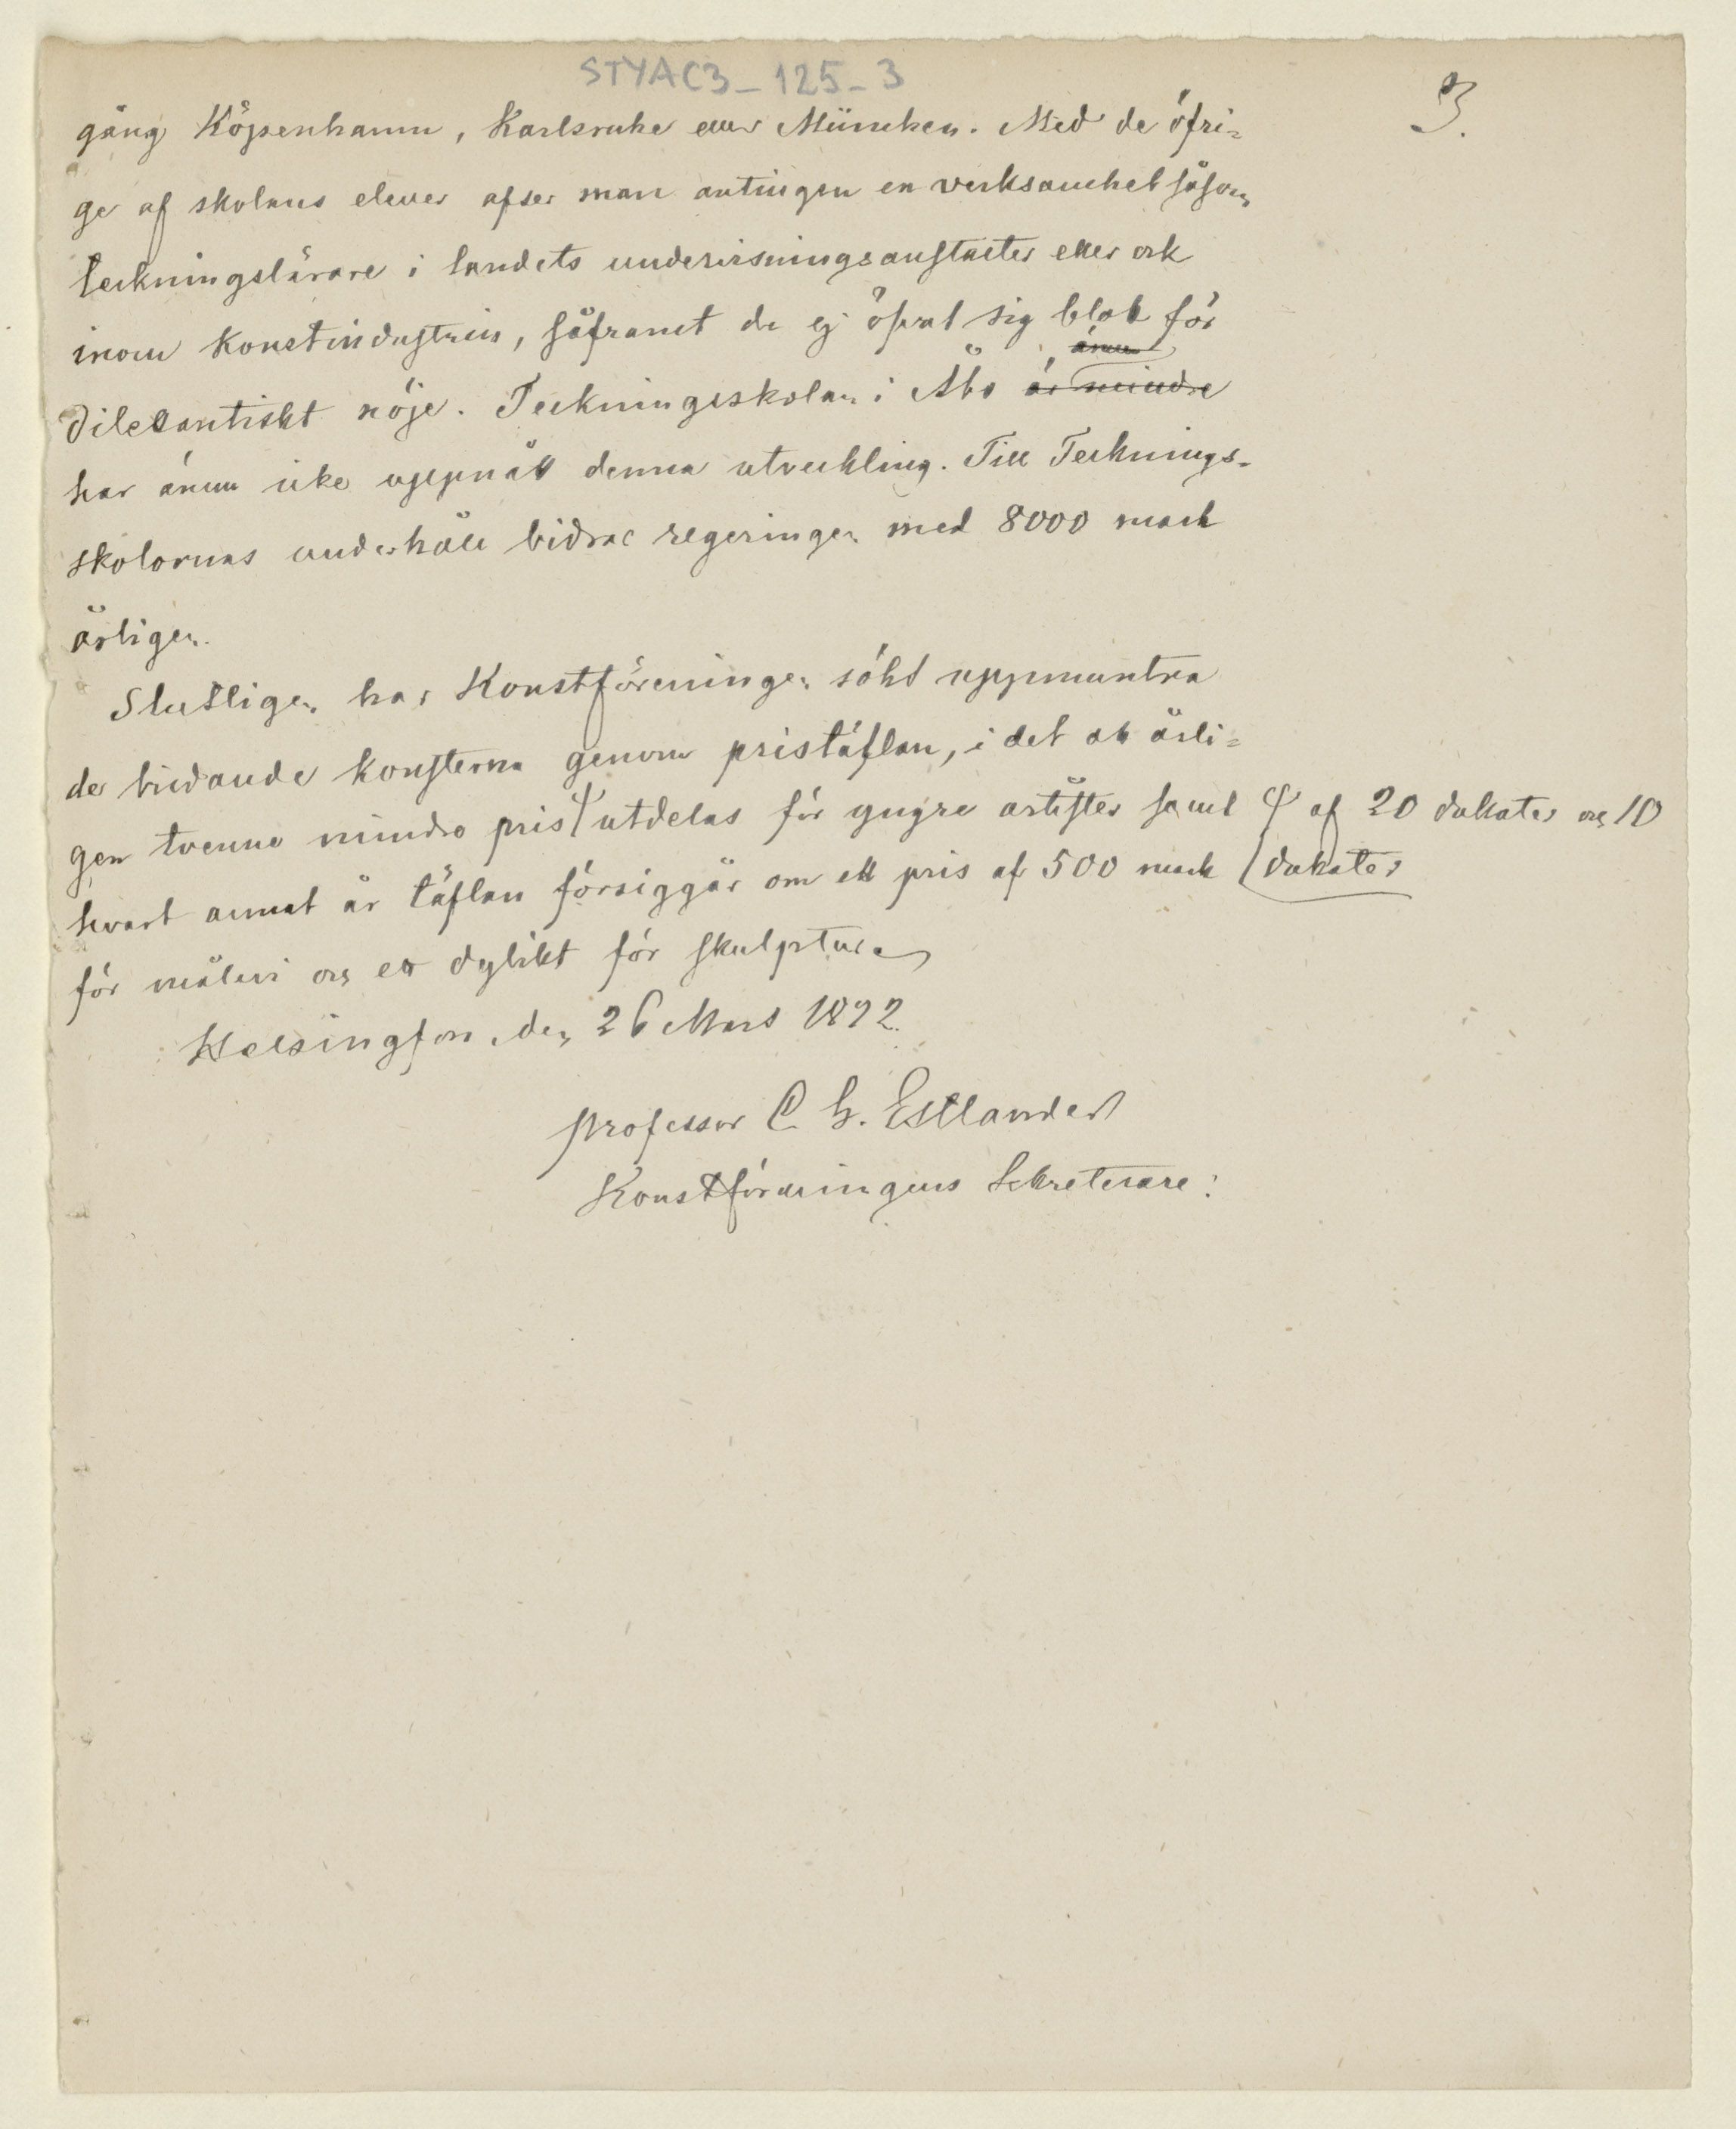 STYAC3_125_3
3.
gång Köpenhamn, Karlsruhe eller München. Med de öfri=
ge af skolans elever afser man antingen en verksamhet såsom
teckningslärare i landets undervisningsanstalter eller ock
inom konstindustrin, såframt de ej öfvat sig blott för
ännu
dilettantiskt nöje. Teckningsskolan i Åbo är mindre
har ännu icke uppnått denna utveckling. Till Tecknings-
skolornas underhåll bidrar regeringen med 8000 mark
årligen.
Slutligen har Konstföreningen sökt uppmuntra
de bildande konsterna genom pristäflan, i det att årli=
gen tvenne mindre pris utdelas för yngre artister samt af 20 dukater och 10
hvart annat år täflan försiggår om ett pris af 500 mark dukater
för måleri och ett dylikt för skulptur.
Helsingfors den 26 Mars 1872.
Professor C G. Estlander
Konstföreningens Sekreterare.